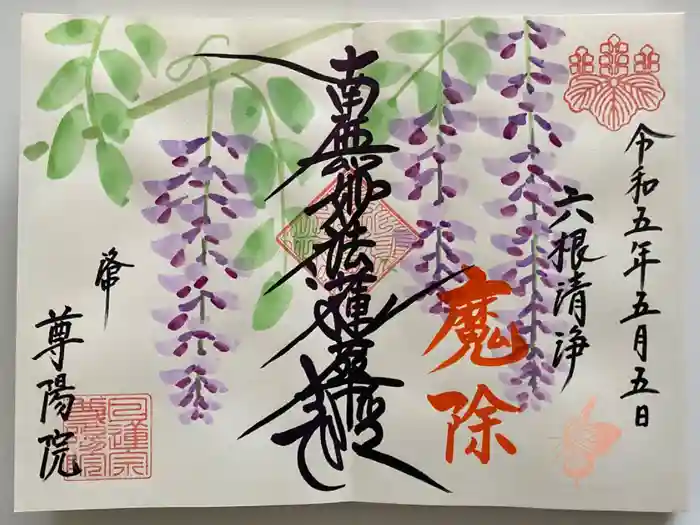 令和五年五月五日
六根清浄
魔除
南無妙法蓮華経
尊陽院